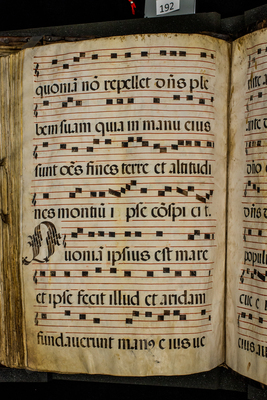 192
quoniā nō repellet dn̄s ple
bem suam quia in manu eius
sunt oēs fines terre et altitudi
nes montiū i pse cōspi ci t.
Quoniā ipsius est mare
et ipse fecit illud et aridam
fundauerunt manꝰ e ius ue